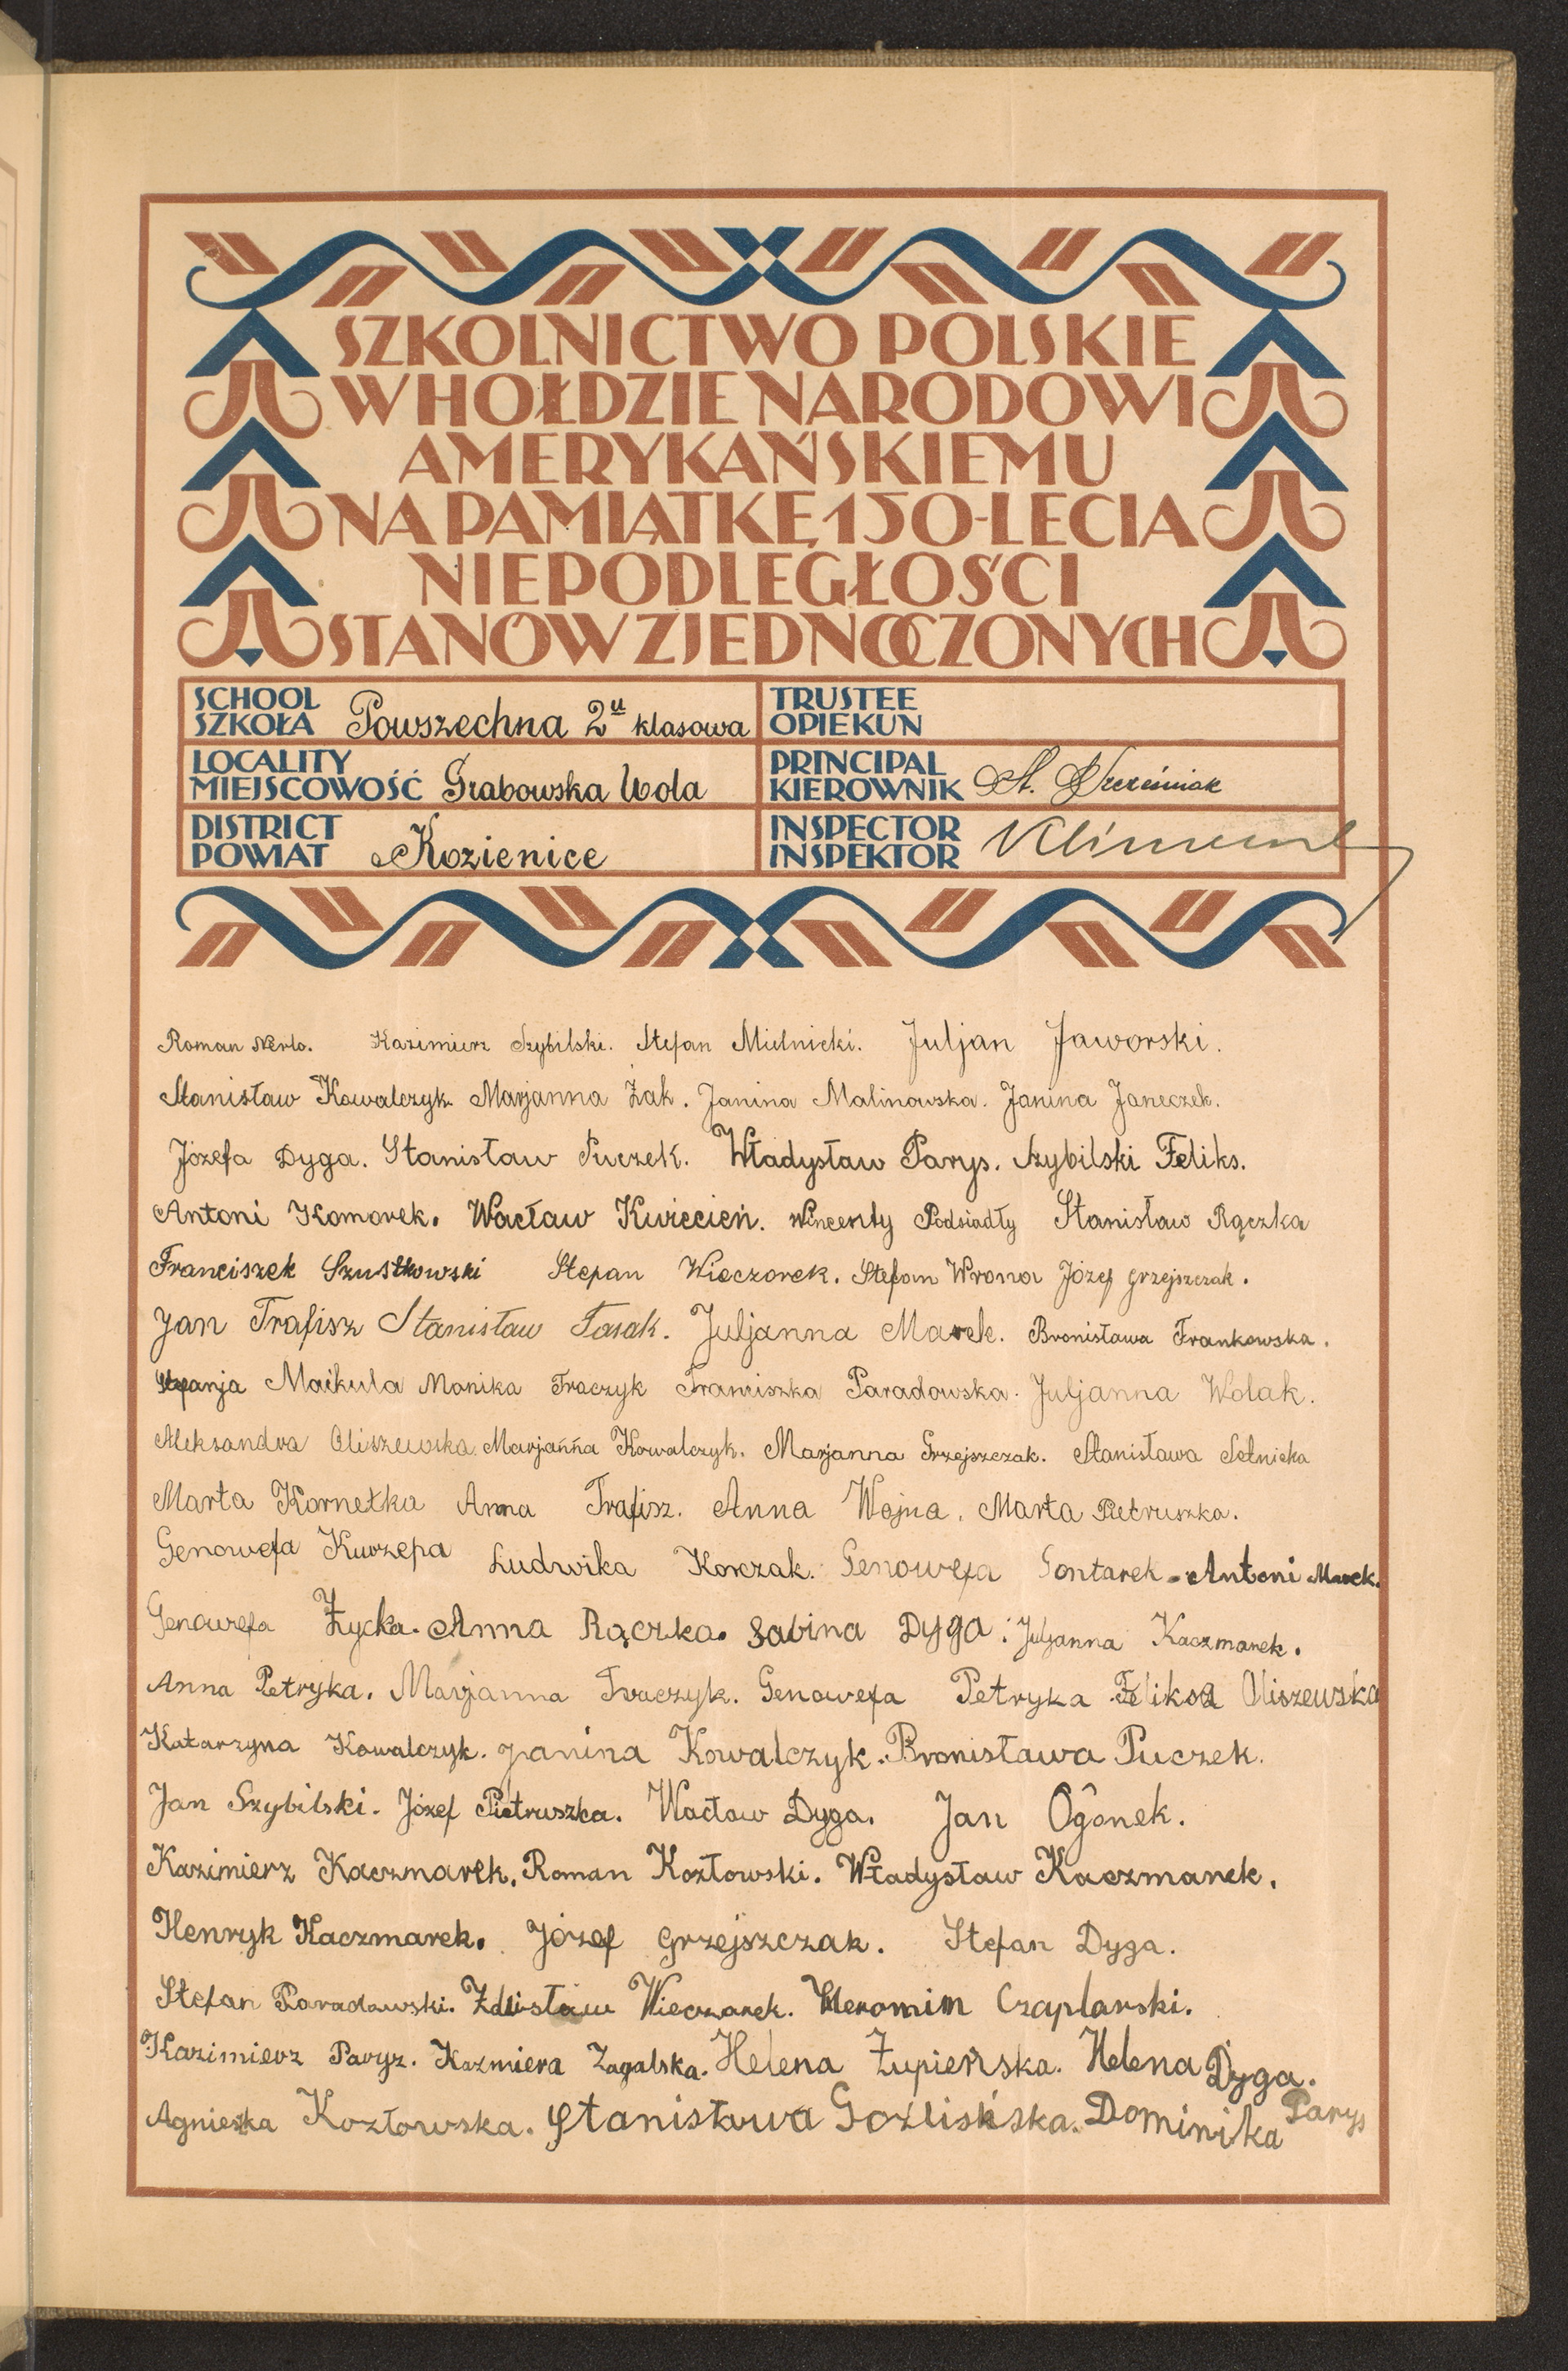 SZKOLNICTWO POLSKIE
W HOŁDZIE NARODOWI
AMERYKAŃSKIEMU
NA PAMIĄTKĘ 150-LECIA
NIEPODLEGŁOŚCI
STANÓW ZJEDNOCZONYCH
SCHOOL
SZKOŁA Powszechna 2u klasowa
TRUSTEE
OPIEKUN
LOCALITY
MIEJSCOWOŚĆ Grabowska Wola
PRINCIPAL
KIEROWNIK St.
DISTRICT
POWIAT Kozienice
INSPECTOR
INSPEKTOR
Roman Nerlo. Kazimierz Szybilski. Stefan Mielnicki. Juljan Jaworski.
Stanisław Kowalczyk Marjanna Żak. Janina Malinowska. Janina Janeczek.
Józefa Dyga. Stanisław Puczek. Władysław Parys. Szybilski Feliks.
Antoni Komorek. Wacław Kwiecień. Wincenty Podsiadły Stanisław Rączka
Franciszek Szustkowski Stepan Wieczorek. Stefan Wrona Józef Grzejszczak.
Jan Trafisz Stanisław Tasak. Juljanna Marek. Bronisława Frankowska.
Maikula Monika Traczyk Franciszka Paradowska. Juljanna Wolak.
Aleksandra Oliszewska. Marjańńa Kowalczyk. Marjanna Grzejszczak. Stanisława Setnicka
Marta Kornetka Anna Trafisz. Anna Wojna. Marta Pietruszka.
Genowefa Kurzepa Ludwika Korczak. Genowefa Gontarek. Antoni Marek.
Genowefa Życka. Anna Rączka. Sabina Dyga. Juljanna Kaczmarek.
Anna Petryka. Marjanna Traczyk. Genowefa Petryka Feliksa Oliszewska
Katarzyna Kowalczyk. Janina Kowalczyk. Bronisława Puczek.
Jan Szybilski. Józef Pietruszka. Wacław Dyga. Jan Ogonek.
Kazimierz Kaczmarek. Roman Kozłowski. Władysław Kaczmarek.
Henryk Kaczmarek. Józef Grzejszczak. Stefan Dyga.
Stefan Paradowski. Zdisław Wieczorek. Hieromim Czaplarski.
Kazimierz Paryz. Kazmiera Zagalska. Helena Żupieńska. Helena Dyga.
Agnieska Kozłowska. Stanisława Goźlińska. Dominika Parys